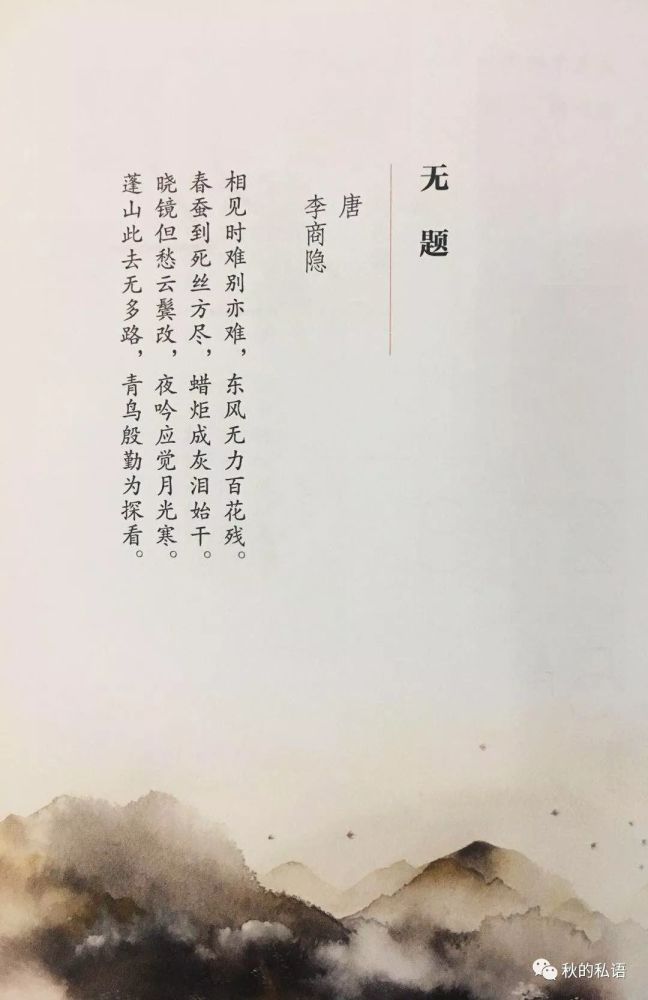 无题
唐
李商隐
相见时难别亦难，东风无力百花残。
春蚕到死丝方尽，蜡炬成灰泪始干。
晓镜但愁云鬓改，夜吟应觉月光寒。
蓬山此去无多路，青鸟殷勤为探看。
秋的私语